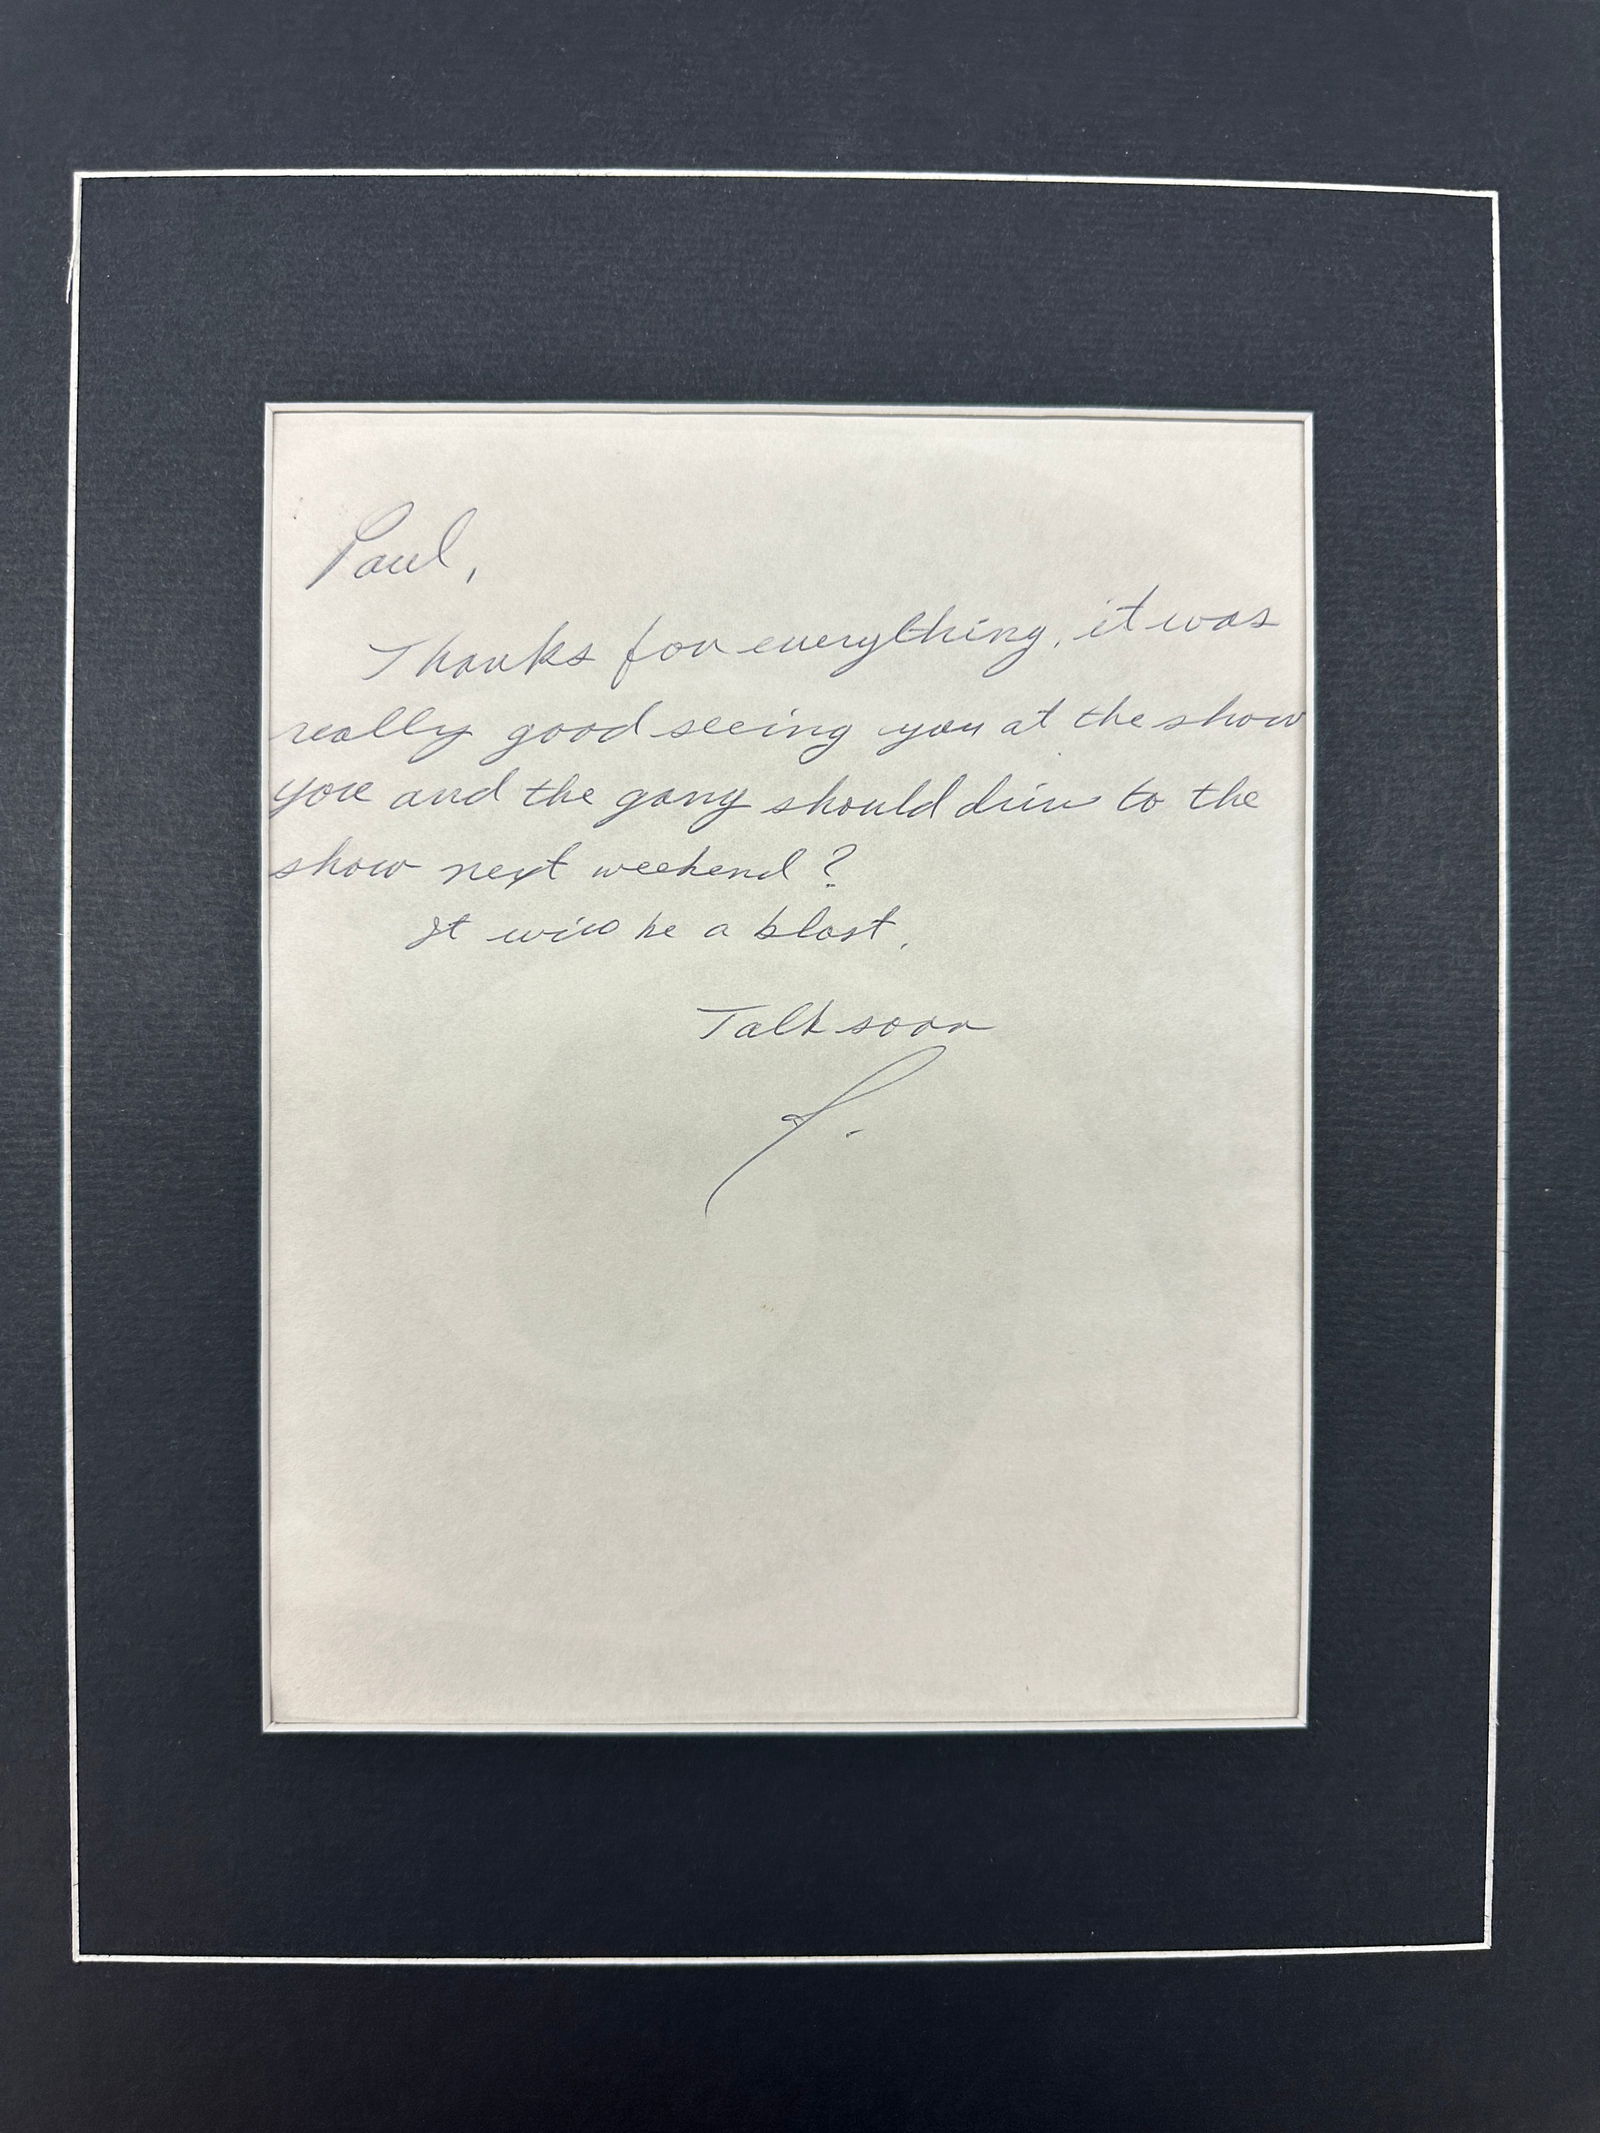 Paul,
Thanks for everything, it was
really good seeing you at the show
you and the gang should drive to the
show next weekend?
It will be a blast.
Talk soon